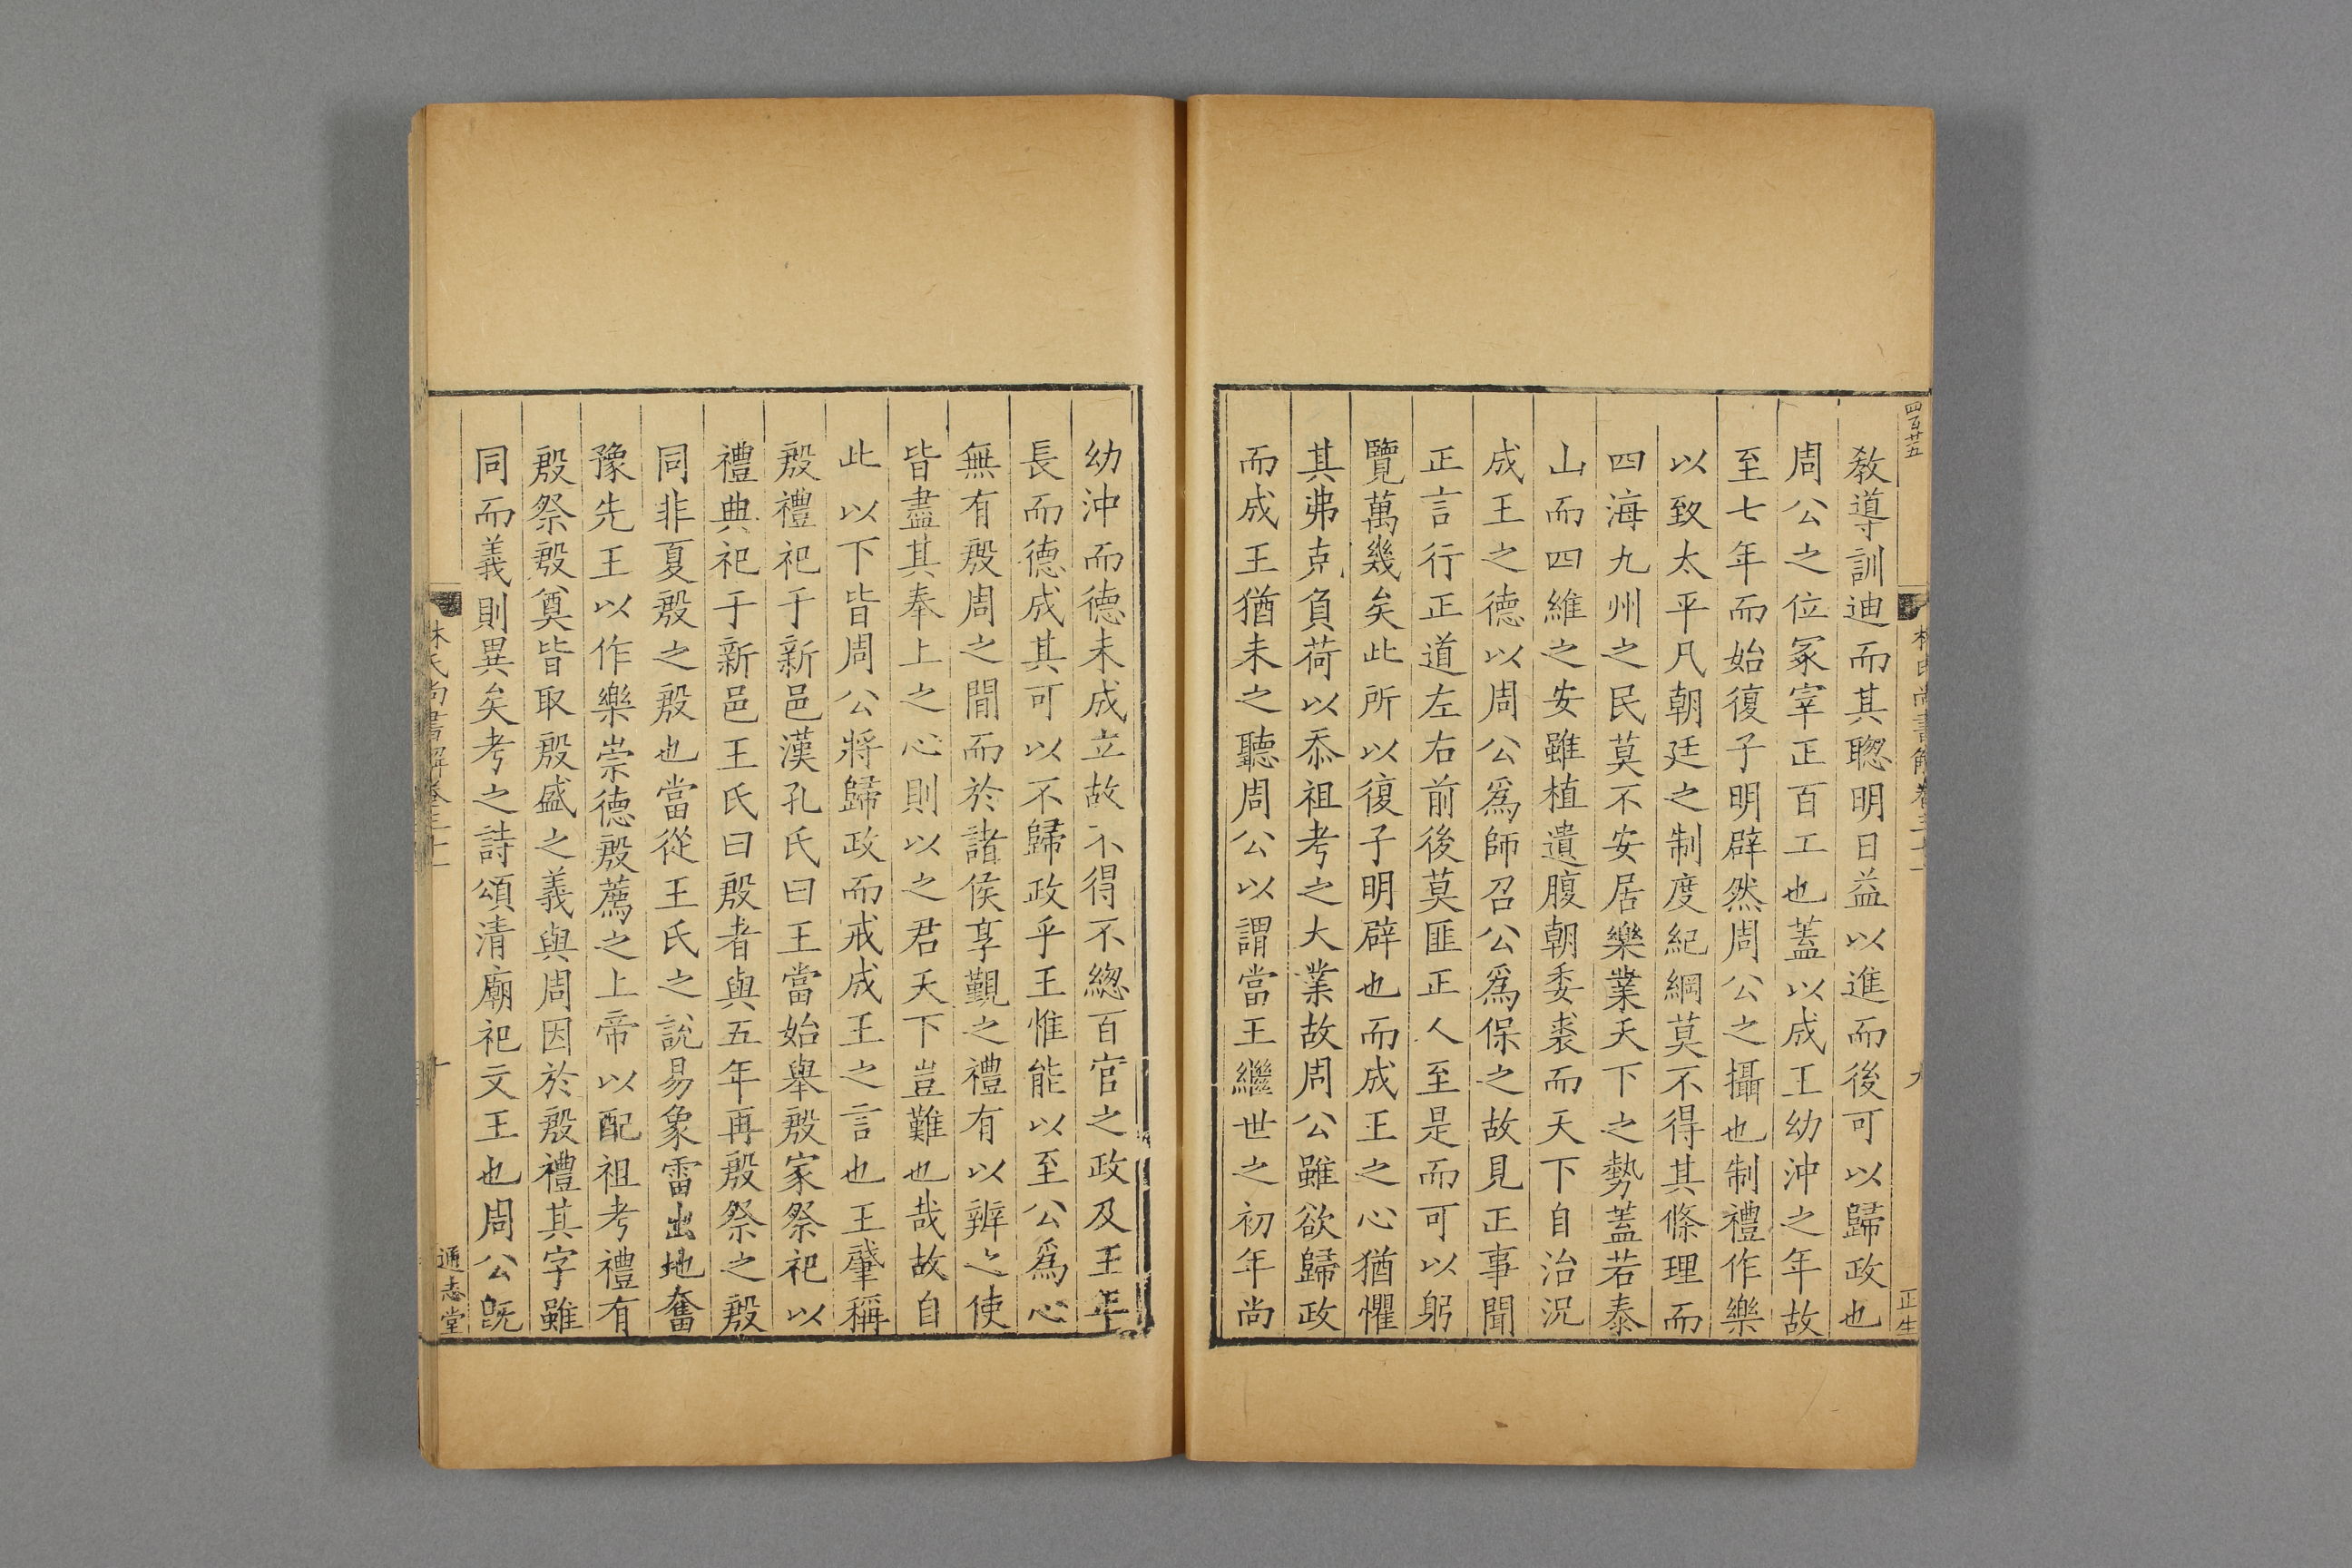 四百廿五
林氏尚書解卷三十一
九
正生
教導訓迪而其聦明日益以進而後可以歸政也
周公之位冢宰正百工也蓋以成王幼沖之年故
至七年而始復子明辟然周公之攝也制禮作樂
以致太平凡朝廷之制度紀綱莫不得其條理而
四海九州之民莫不安居樂業天下之勢蓋若泰
山而四維之安雖植遺腹朝委裘而天下自治況
成王之德以周公爲師召公爲保之故見正事聞
正言行正道左右前後莫匪正人至是而可以躬
覽萬幾矣此所以復子明辟也而成王之心猶懼
其弗克負荷以忝祖考之大業故周公雖欲歸政
而成王猶未之聽周公以謂當王繼世之初年尚
幼沖而德未成立故不得不緫百官之政及王年
長而德成其可以不歸政乎王惟能以至公爲心
無有殷周之間而於諸侯享覲之禮有以辨之使
皆盡其奉上之心則以之君天下豈難也哉故自
此以下皆周公將歸政而戒成王之言也王肇稱
殷禮祀于新邑漢孔氏曰王當始舉殷家祭祀以
禮典祀于新邑王氏曰殷者與五年再殷祭之殷
同非夏殷之殷也當從王氏之說易象雷出地奮
豫先王以作樂崇德殷薦之上帝以配祖考禮有
殷祭殷奠皆取殷盛之義與周因於殷禮其字雖
同而義則異矣考之詩頌清廟祀文王也周公旣
林氏尚書解卷三十一
十
通志堂